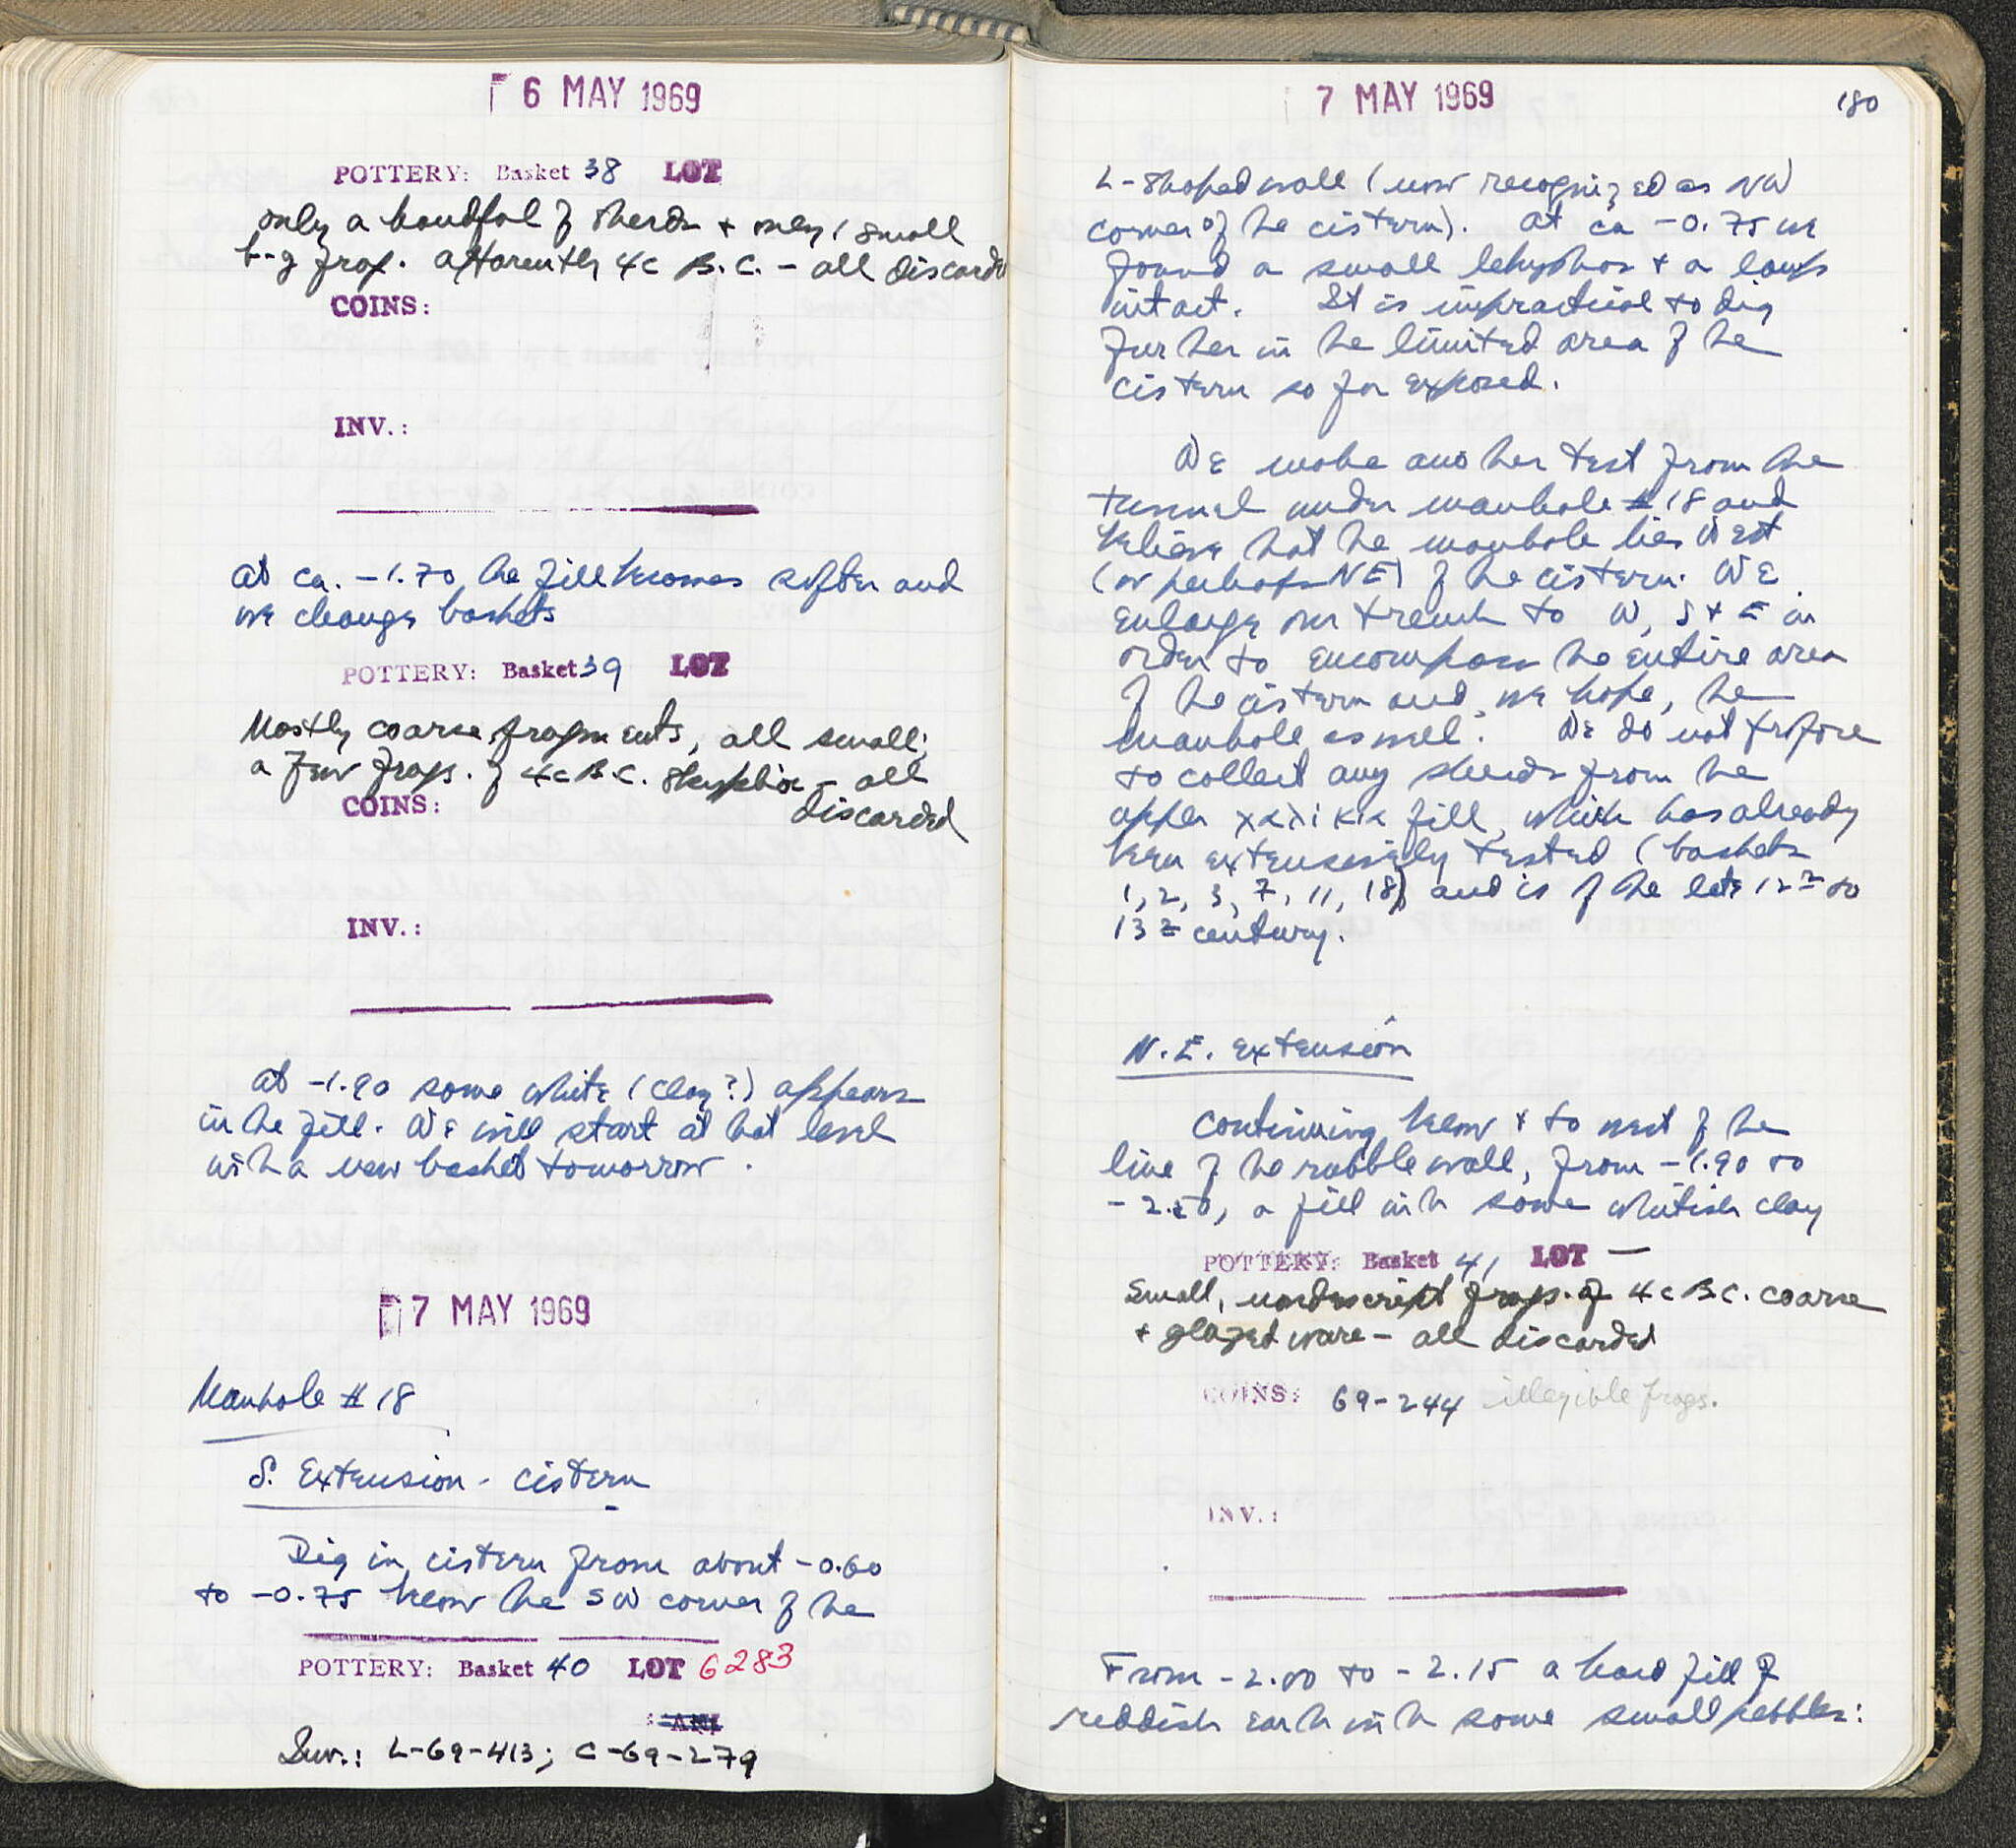 6 MAY 1969
POTTERY: Basket 38 LOT
only a handful of sherds + only 1 small
b-g frag. apparently 4c B.C. - all discarded
COINS:
INV.:
at ca. -1.70 the fill becomes softer and
we change baskets
POTTERY: Basket 39 LOT
Mostly coarse fragments, all small;
a few frags. of 4c B.C. skyphoi - all
discarded
COINS:
INV.:
at -1.90 some white (clay?) appears
in the fill. We will start at that level
with a new basket tomorrow.
7 MAY 1969
Manhole # 18
S. Extension - cistern
Dig in cistern from about -0.60
to -0.75 below the SW corner of the
POTTERY: Basket 40 LOT 6283
Inv.: L-69-413; C-69-279
7 MAY 1969
180
L-shaped wall (now recognized as NW
corner of the cistern). At ca -0.75 we
found a small lekythos + a lamp
intact. It is impractical to dig
further in the limited area of the
cistern so far exposed.
We make another test from the
tunnel under manhole # 18 and
believe that the manhole lies West
(or perhaps NE) of the cistern. We
enlarge our trench to W, S + E in
order to encompass the entire area
of the cistern and, we hope, the
manhole as well. We do not propose
to collect any sherds from the
upper χαλίκια fill, which has already
been extensively tested (baskets
1, 2, 3, 7, 11, 18) and is of the late 12th to
13th century.
N.E. Extension
Continuing below + to west of the
line of the rubble wall, from -1.90 to
POTTERY: Basket 41 LOT —
Small, nondescript frags. of 4c B.C. coarse
+ glazed ware - all discarded
COINS: 69-244 illegible frags.
INV.:
From -2.00 to -2.15 a hard fill of
reddish earth with some small pebbles: